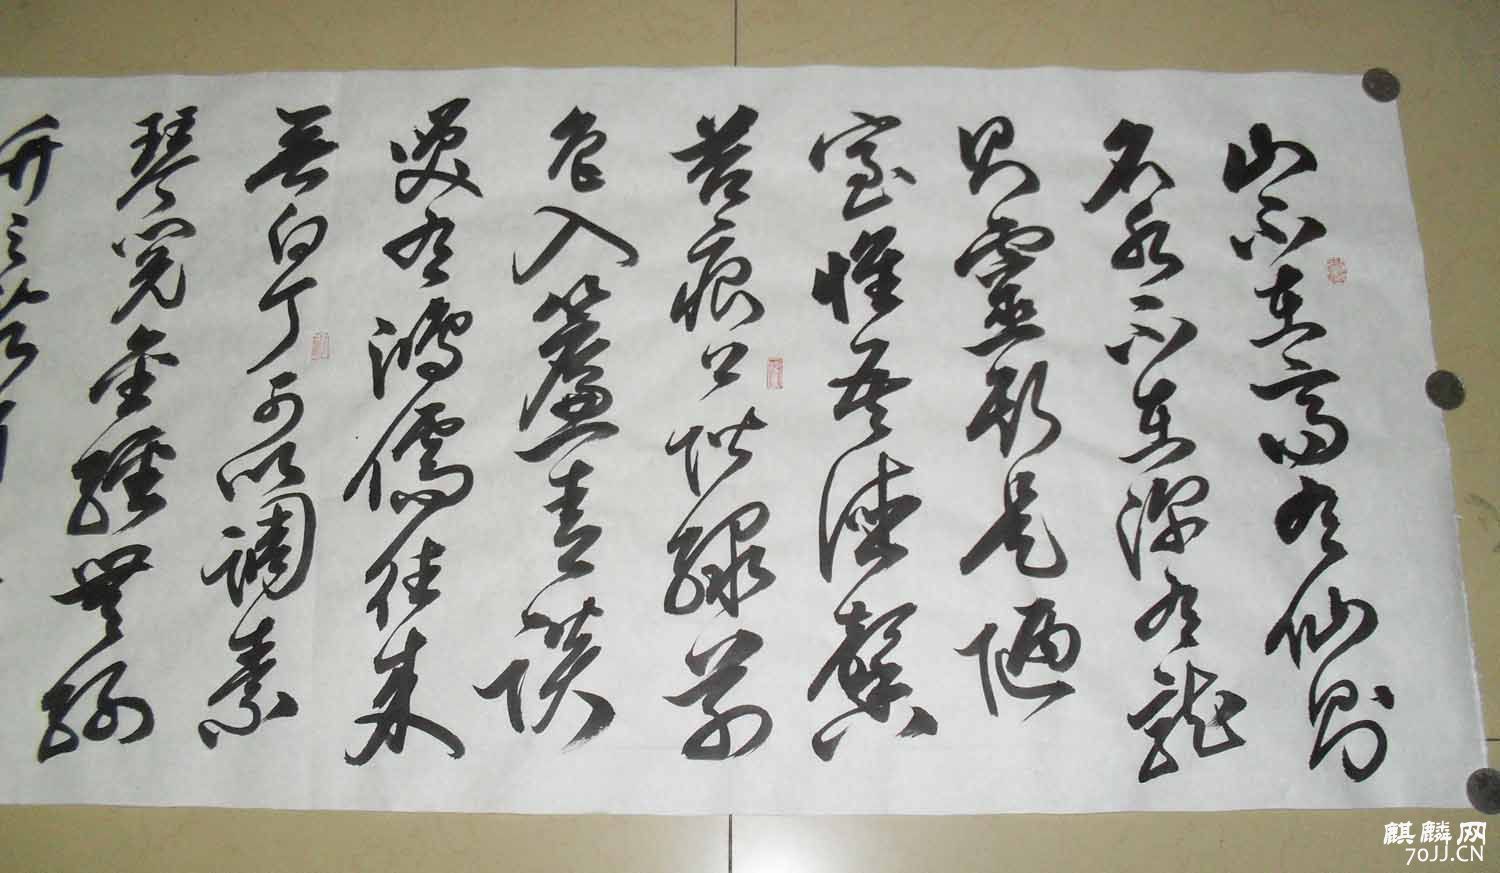 山不在高有仙則
名水不在深有龍
則靈斯是陋
室惟吾德馨
苔痕上階綠草
色入簾青談
笑有鴻儒往來
無白丁可以調素
琴閱金經無絲
竹之
麒麟网
70JJ.CN